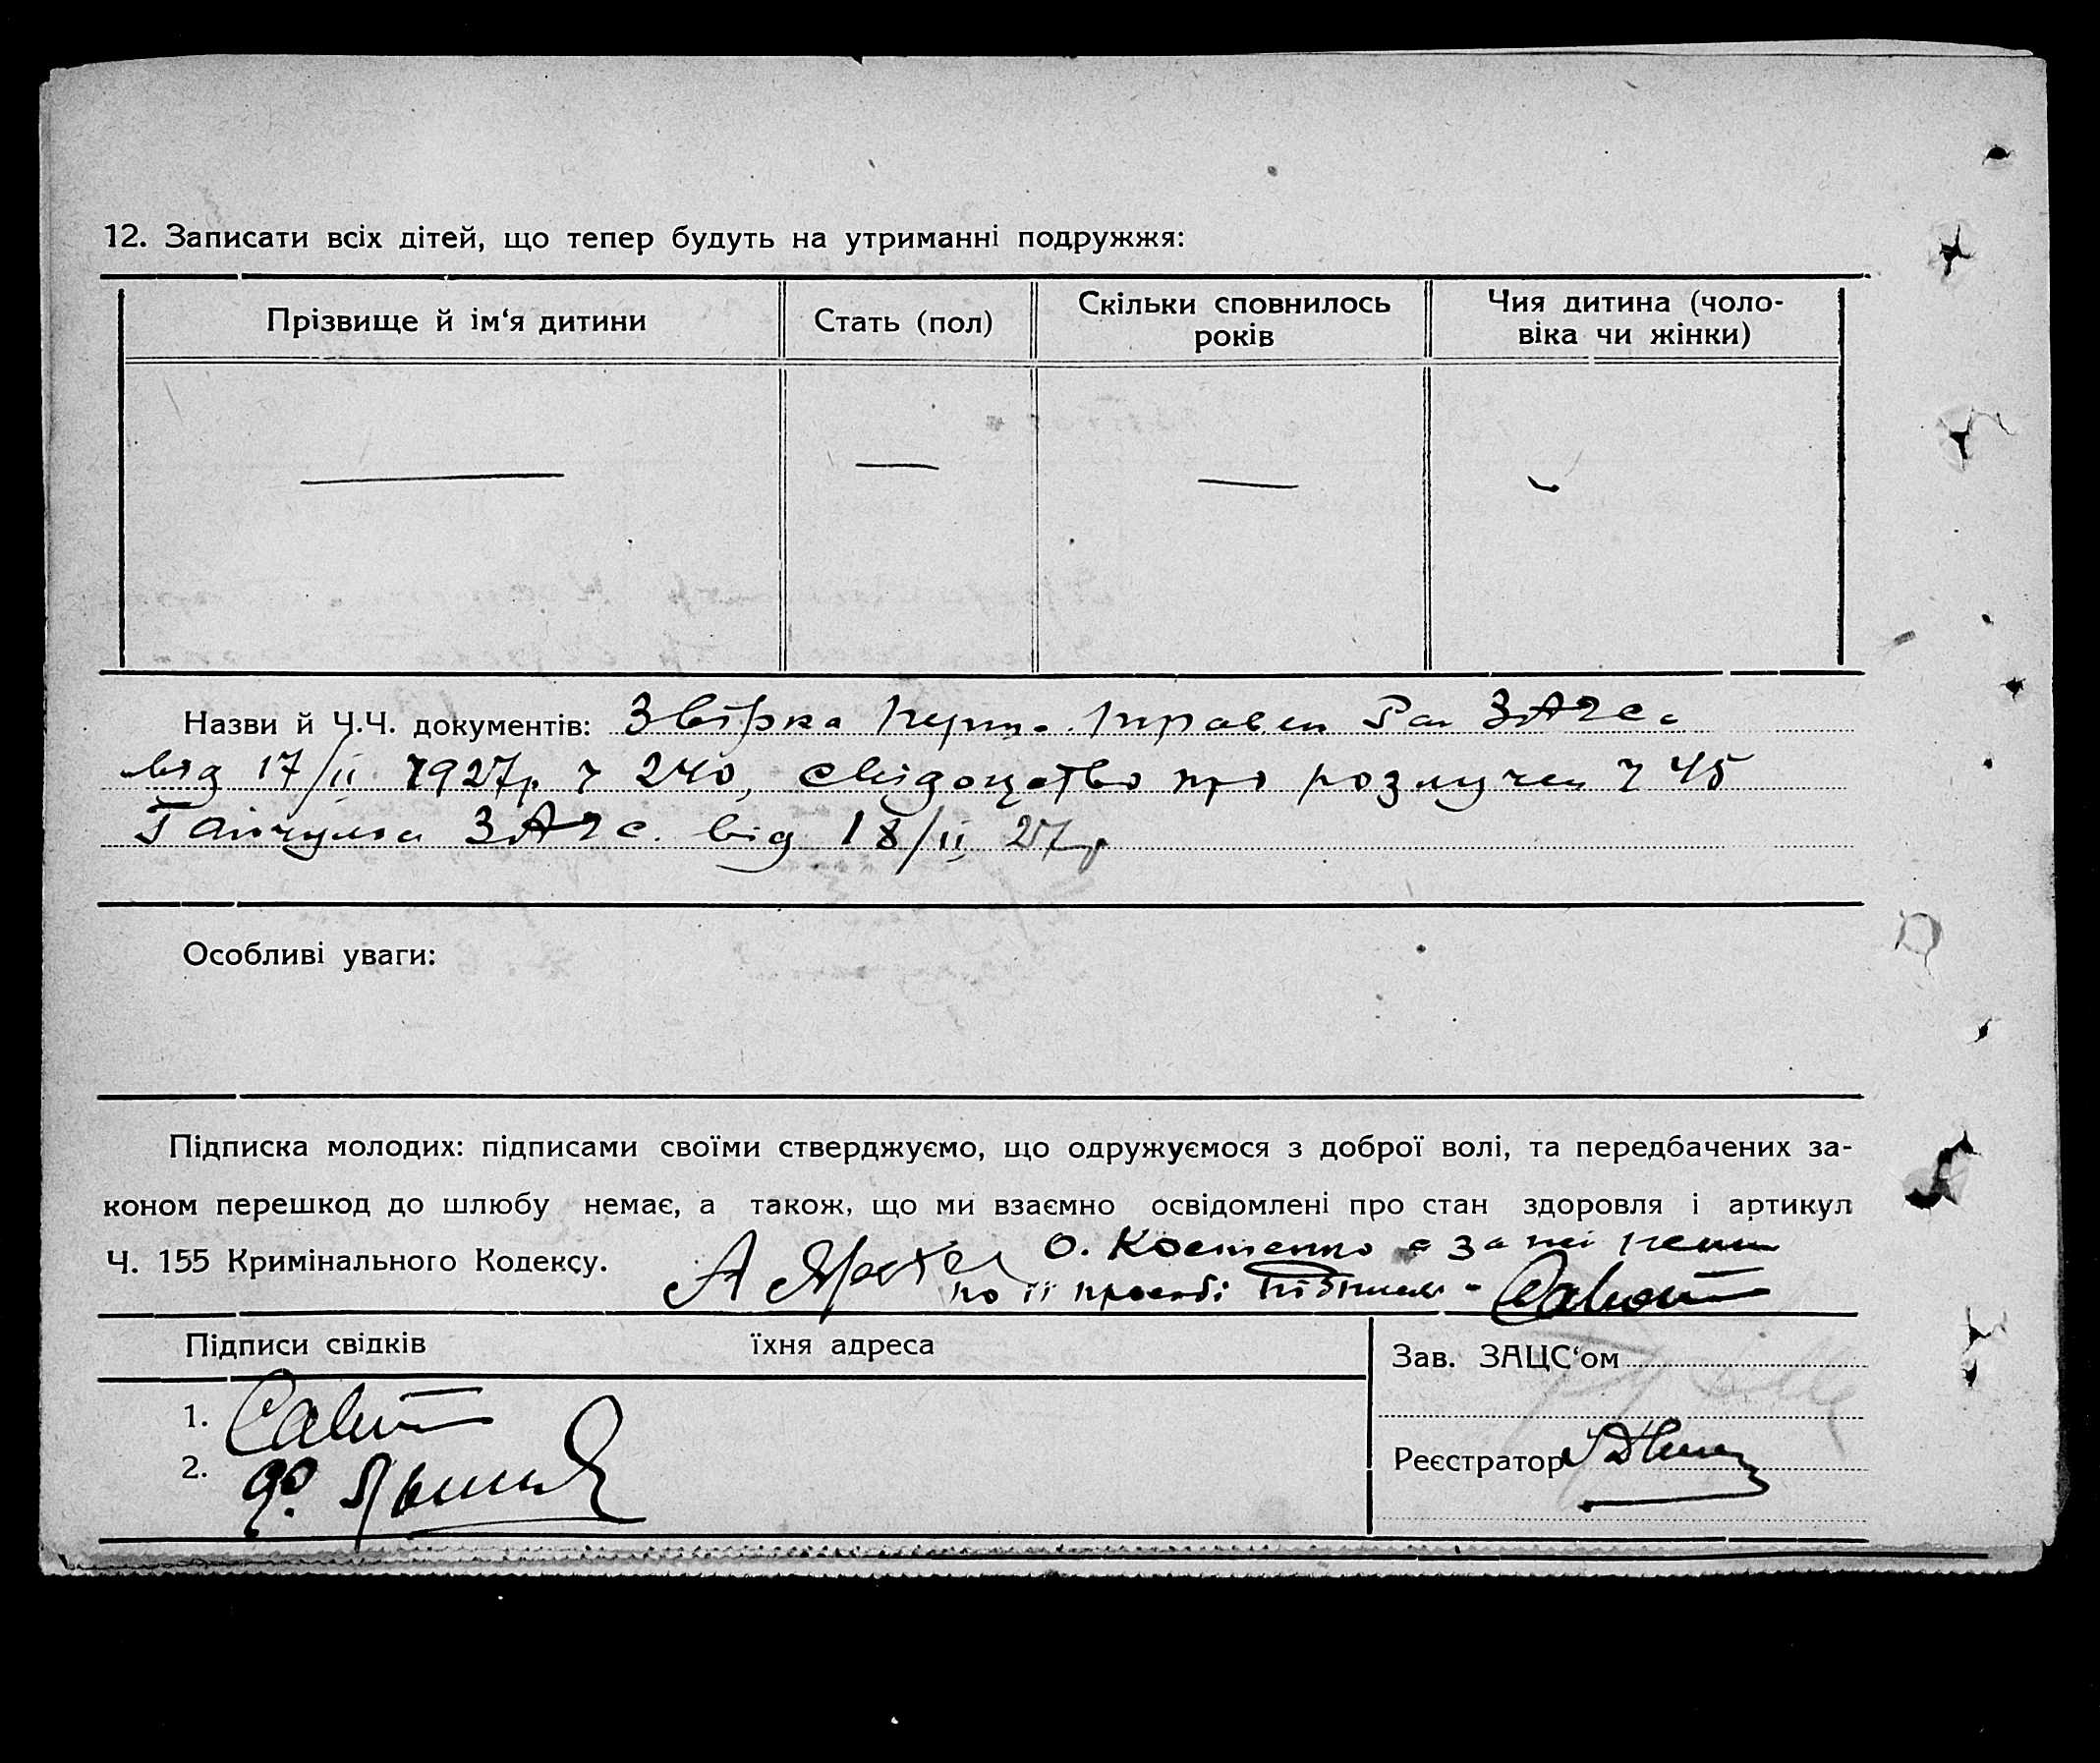 12. Записати всіх дітей, що тепер будуть на утриманні подружжя:
Прізвище й ім‘я дитини
Стать (пол)
Скільки сповнилось
років
Чия дитина (чоло-
віка чи жінки)
Назви й Ч.Ч. документів: Звірка
від 17/II 1927р ч 240, свідоцтво про розлучен ч 45
Гайчульск ЗАГС. від 18/II 27р
Особливі уваги:
Підписка молодих: підписами своїми стверджуємо, що одружуємося з доброї волі, та передбачених за-
коном перешкод до шлюбу немає, а також, що ми взаємно освідомлені про стан здоровля і артикул
Ч. 155 Кримінального Кодексу. О. Костенко а за неї
по її просьбі
Підписи свідків
їхня адреса
Зав. ЗАЦС‘ом
1.
2.
Реєстратор